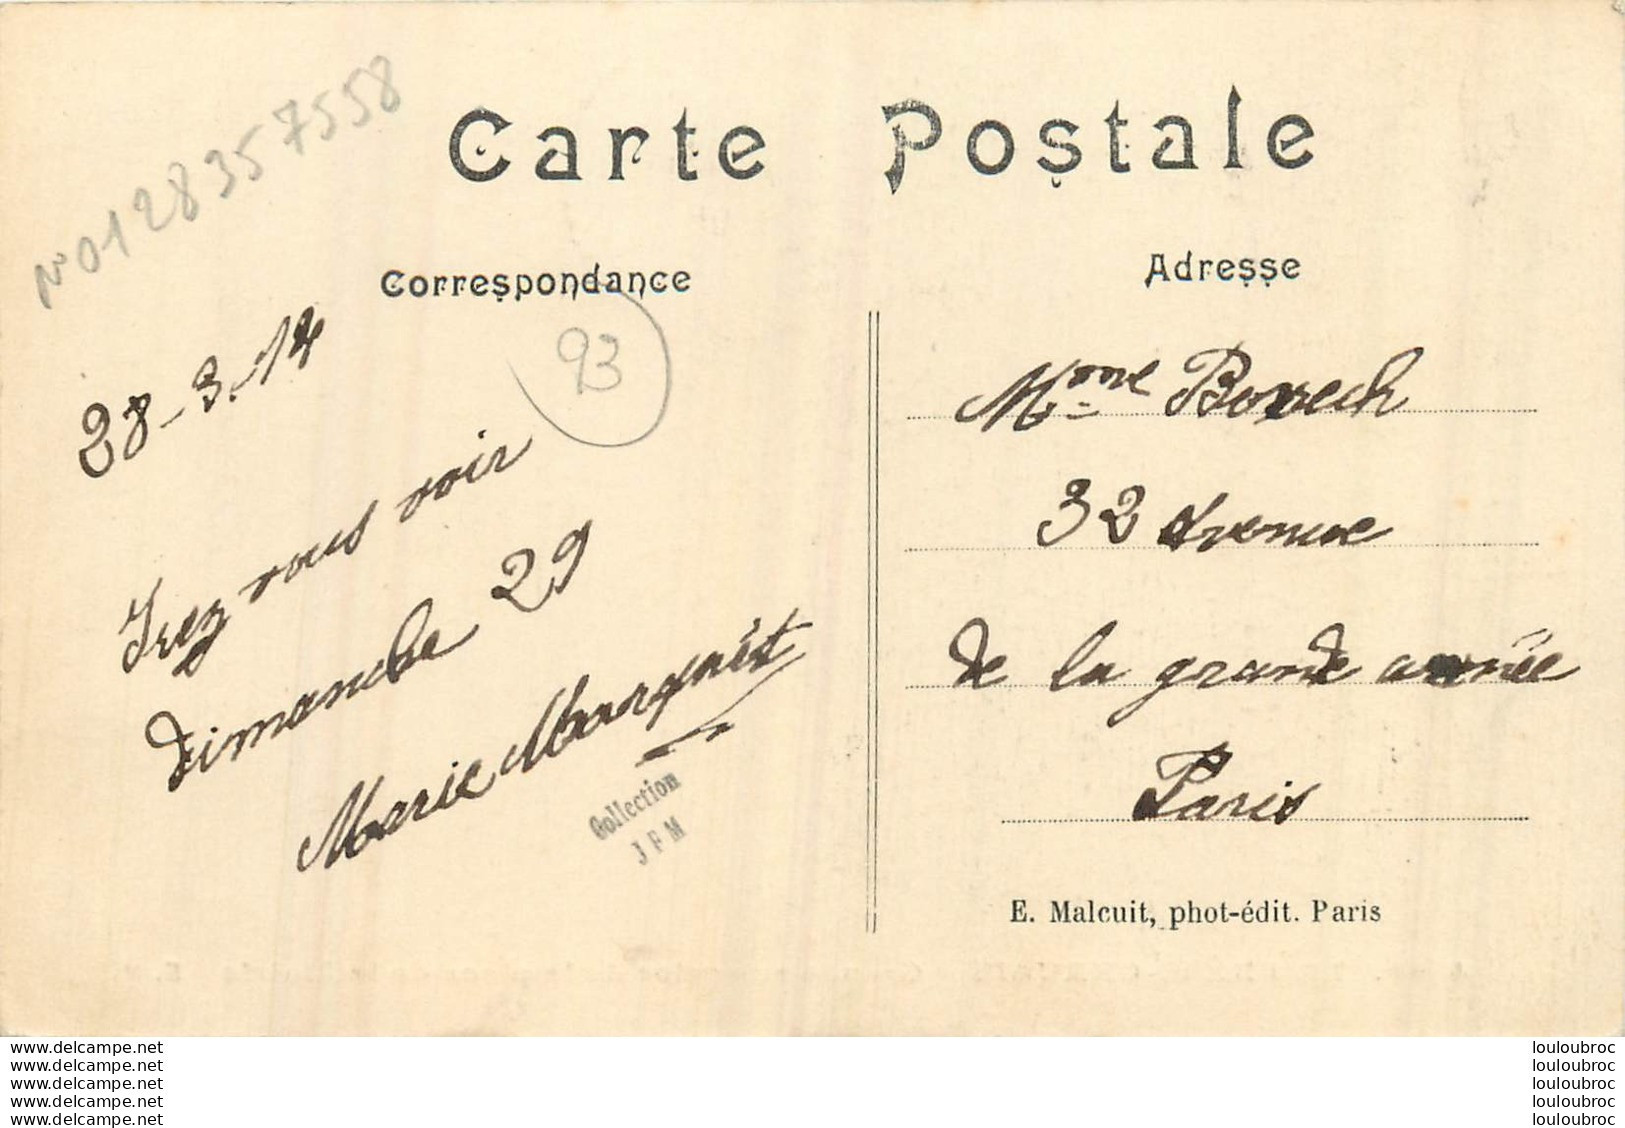 N° 0128357558
Carte Postale
Correspondance
93
28-3-14
Irez vous voir
dimanche 29
Marie Marquist
Collection
JFM
Adresse
Mme
32 Avenue
de la grande armée
Paris
E. Malcuit, phot-édit. Paris
www.delcampe.net
www.delcampe.net
www.delcampe.net
www.delcampe.net
www.delcampe.net
louloubroc
louloubroc
louloubroc
louloubroc
louloubroc